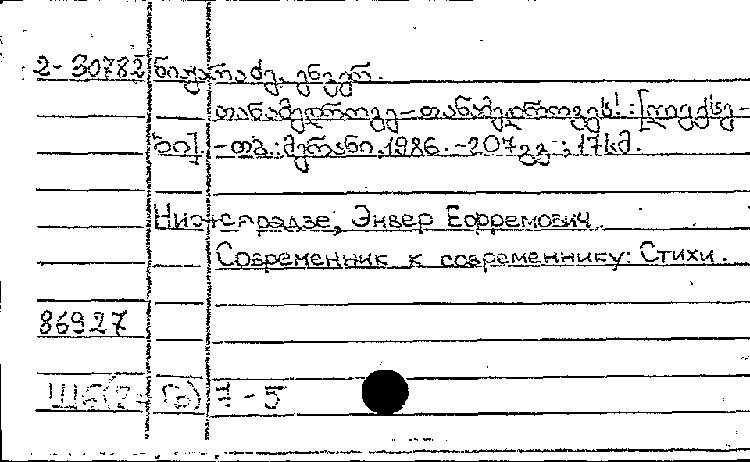 2-30782 ნიჟარაძე, ენვერ.
თანამედროვე-თანამედროვეს! : [ლექსე-
ბი]. -თბ.: მერანი, 1986. -207გვ.; 17სმ.
Нижарадзе, Энвер Ефремович
Современник к современнику: Стихи.
86927
-5